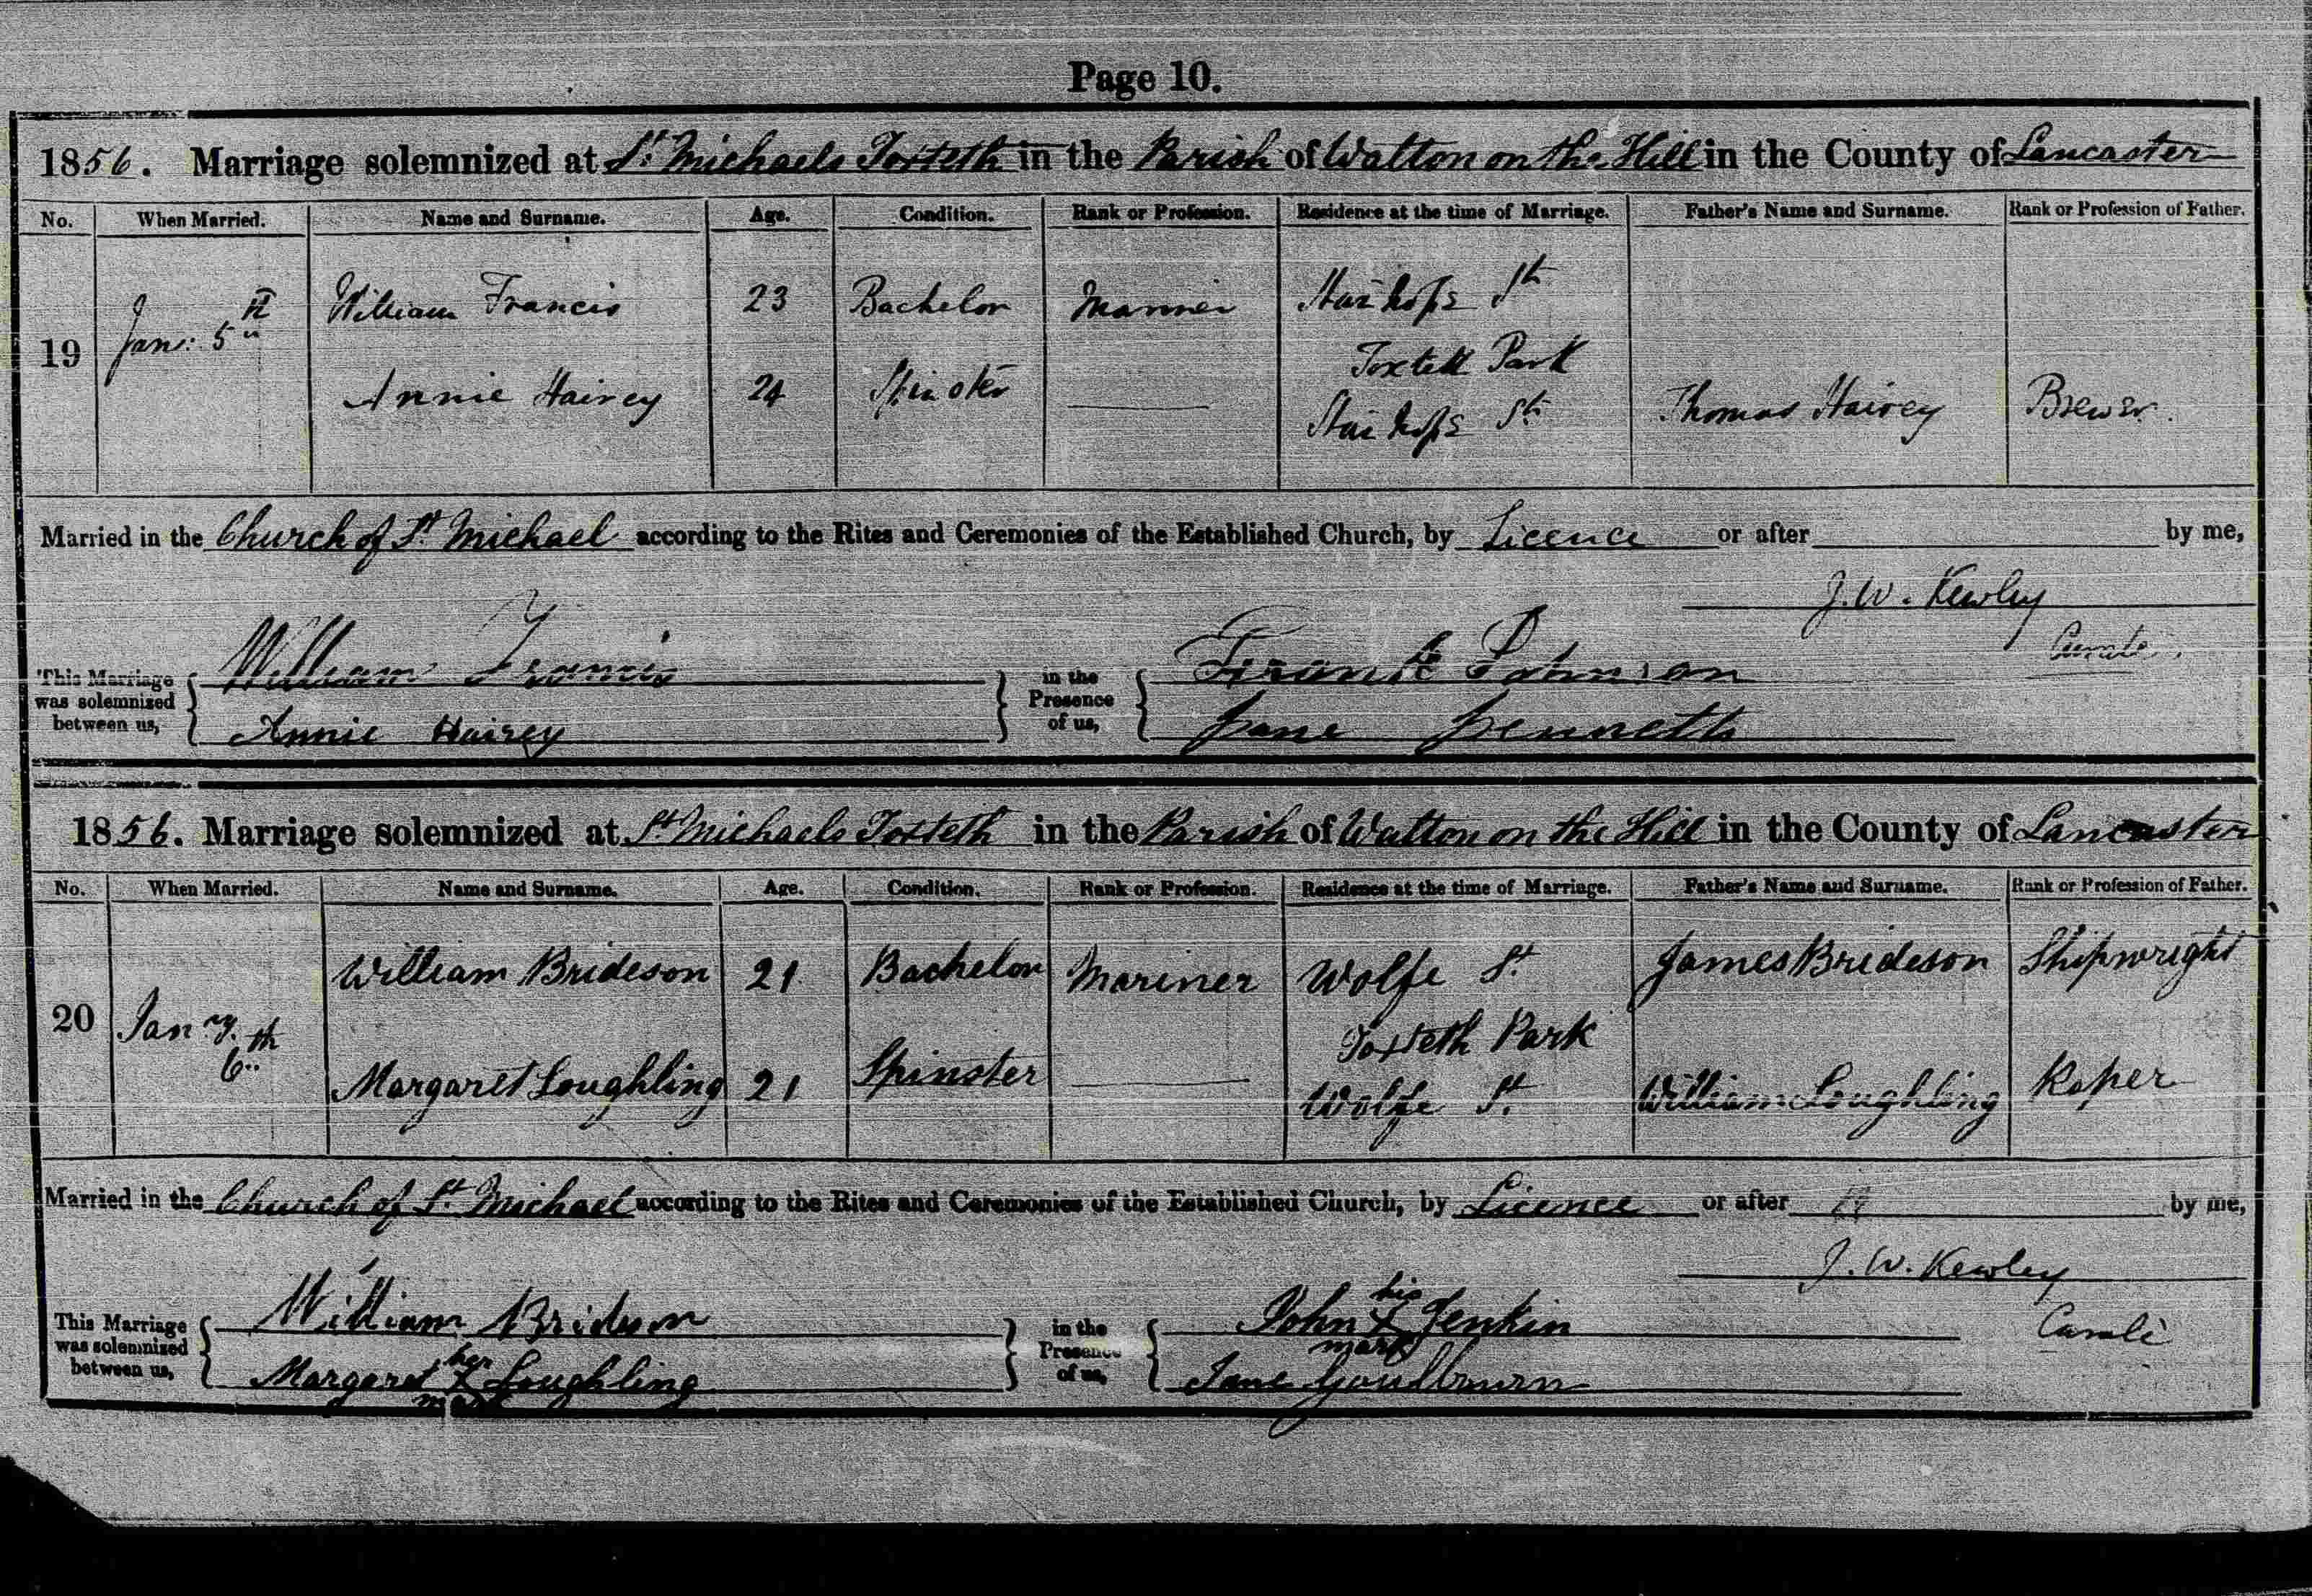 Page 10.
1856. Marriage solemnized at St. Michaels Toxteth in the Parish of Walton on the Hill in the County of Lancaster
No. When Married. Name and Surname. Age. Condition. Rank or Profession. Residence at the time of Marriage. Father's Name and Surname. Rank or Profession of Father.
William Francis 23 Bachelor Mariner Stanhope St
19 Jan: 5th Toxteth Park
Annie Hairey 24 Spinster Stanhope St Thomas Hairey Brewer.
Married in the Church of St. Michael according to the Rites and Ceremonies of the Established Church, by Licence or after by me,
J. W. Kewley
Curate.
This Marriage was solemnized between us, William Francis in the Presence of us, Frank Johnson
Annie Hairey Jane Jennett
1856. Marriage solemnized at St Michaels Toxteth in the Parish of Walton on the Hill in the County of Lancaster
No. When Married. Name and Surname. Age. Condition. Rank or Profession. Residence at the time of Marriage. Father's Name and Surname. Rank or Profession of Father.
William Brideson 21 Bachelor Mariner Wolfe St. James Brideson Shipwright
20 Jany. 6th Toxteth Park
Margaret Loughling 21 Spinster Wolfe St. William Loughling Roper
Married in the Church of St. Michael according to the Rites and Ceremonies of the Established Church, by Licence or after by me,
J. W. Kewley
Curate
This Marriage was solemnized between us, William Bridson in the Presence of us, John his X mark Jenkin
Margaret her X mark Loughling Jane Goulbourn